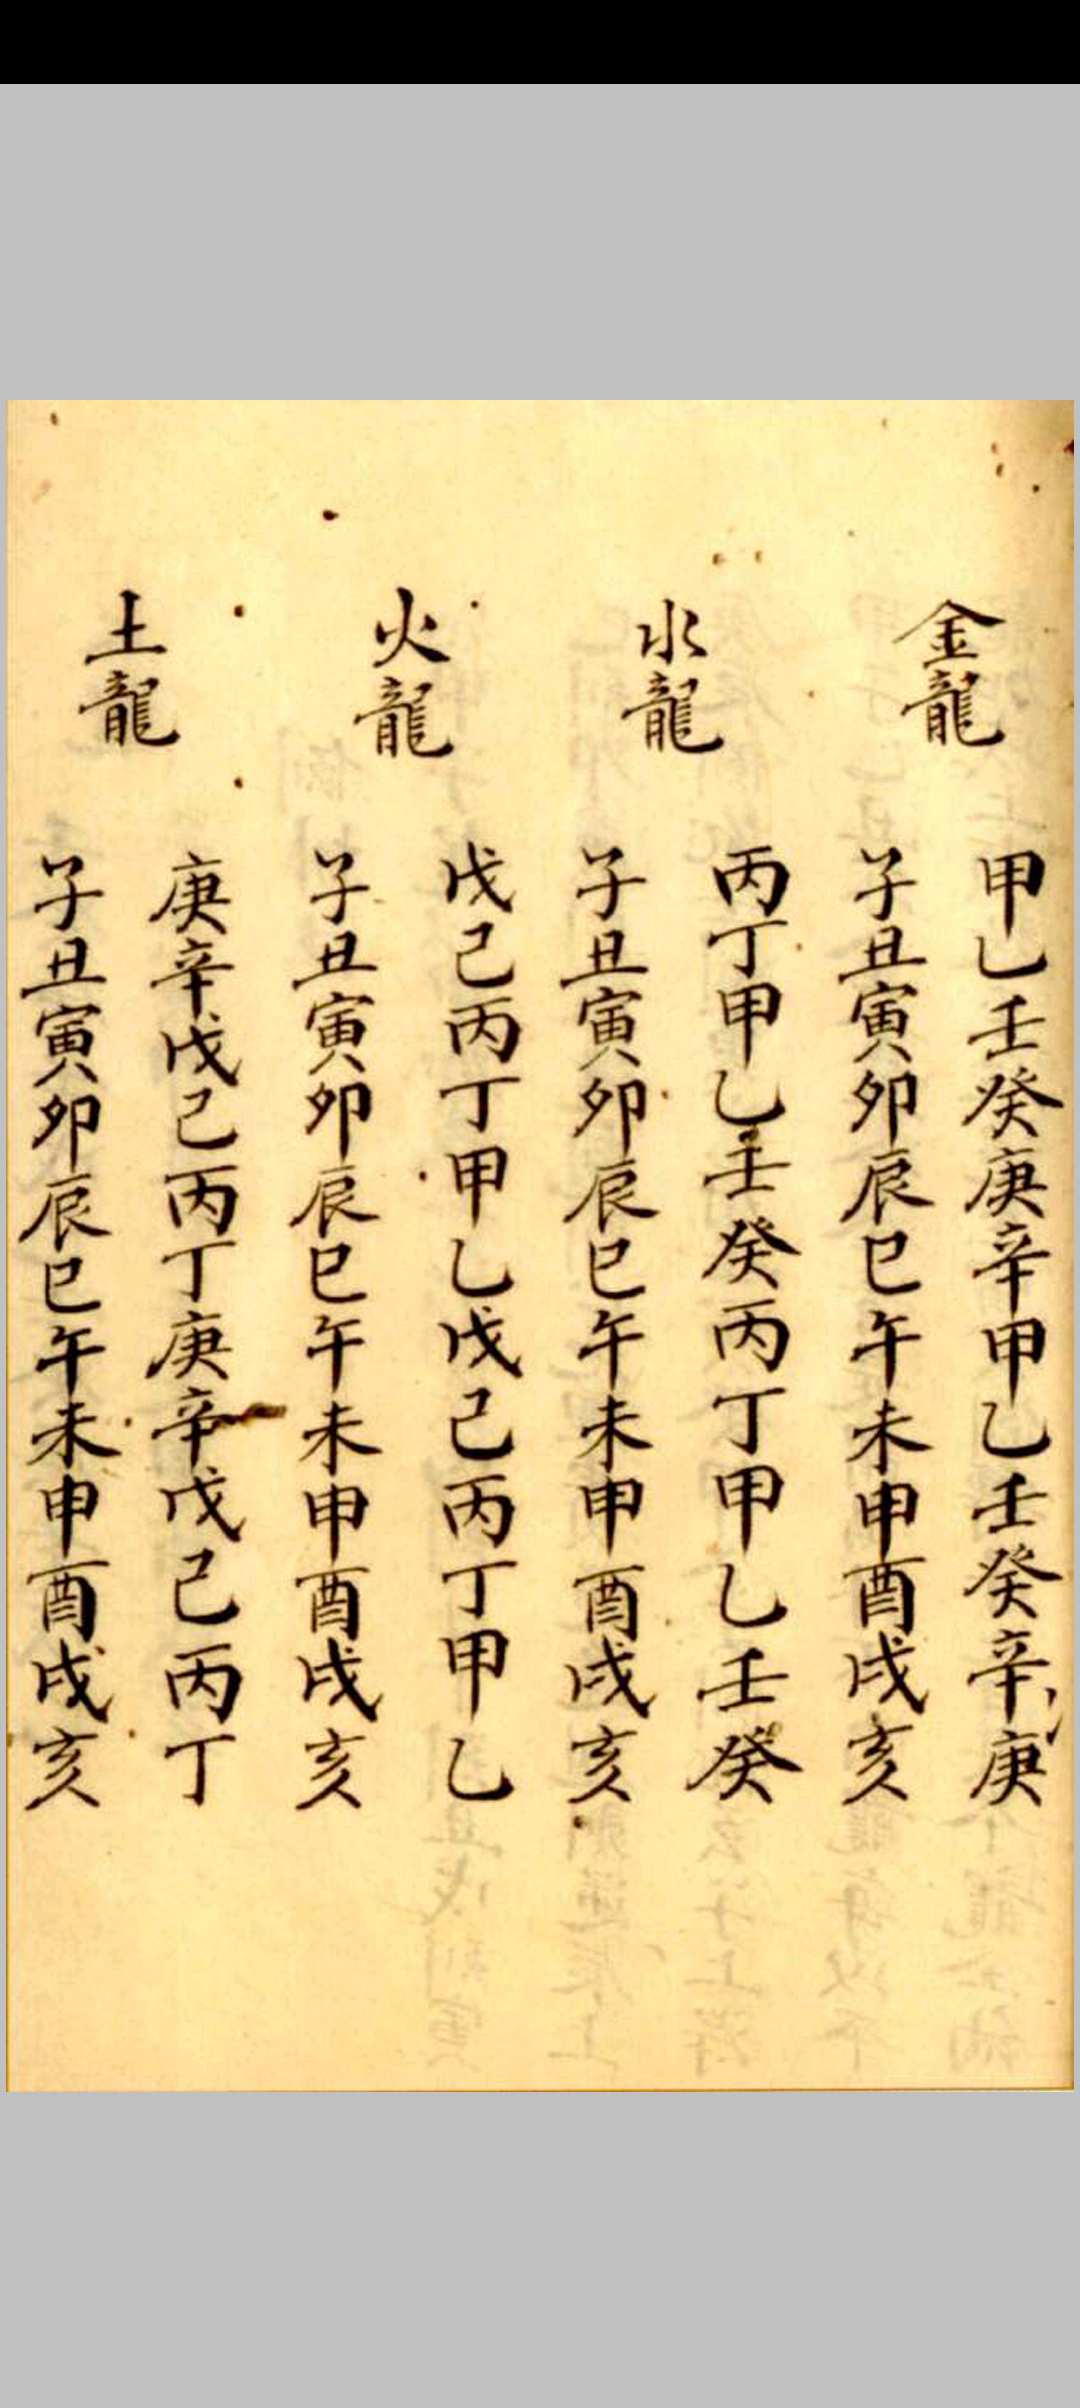 金龍
甲乙壬癸庚辛甲乙壬癸辛庚
子丑寅卯辰巳午未申酉戌亥
水龍
丙丁甲乙壬癸丙丁甲乙壬癸
子丑寅卯辰巳午未申酉戌亥
火龍
戊己丙丁甲乙戊己丙丁甲乙
子丑寅卯辰巳午未申酉戌亥
土龍
庚辛戊己丙丁庚辛戊己丙丁
子丑寅卯辰巳午未申酉戌亥